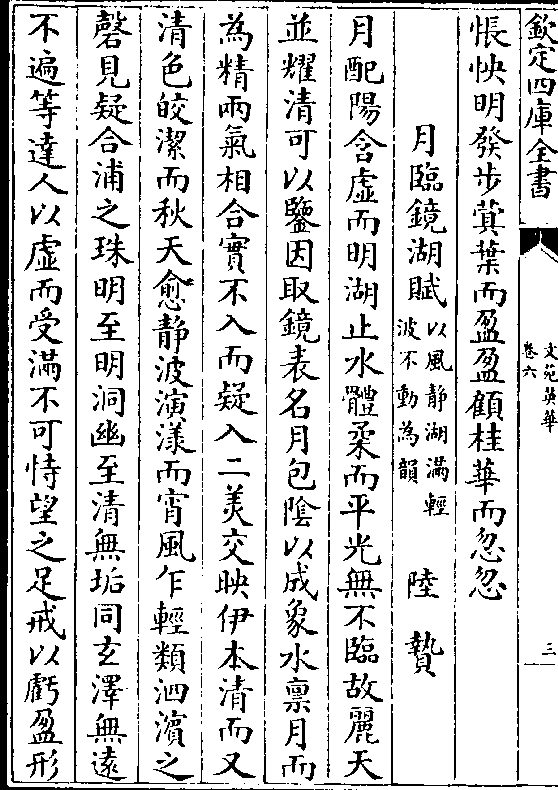 欽定四庫全書
文苑英華
卷六
三
悵怏明發步蓂葉而盈盈顧桂華而忽忽
月臨鏡湖賦以風静湖滿輕波不動為韻 陸贄
月配陽含虚而明湖止水體柔而平光無不臨故麗天
並耀清可以鑒因取鏡表名月包隂以成象水禀月而
為精兩氣相合實不入而疑入二美交映伊本清而又
清色皎潔而秋天愈静波演漾而宵風乍輕類泗濱之
磬見疑合浦之珠明至明洞幽至清無垢同玄澤無遠
不遍等達人以虚而受滿不可恃望之足戒以虧盈形